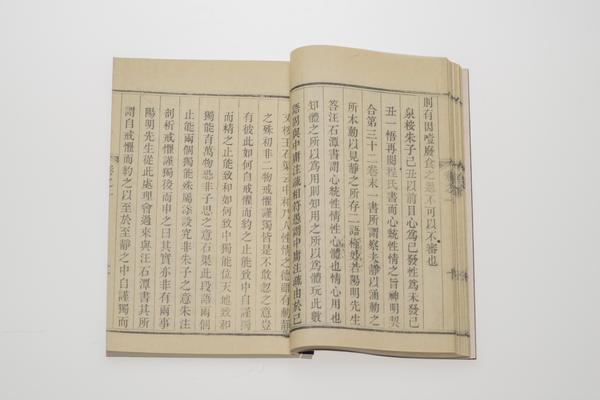 則有因噎廢食之過不可以不審也
泉桉朱子己丑以前目心為已發性為未發己
丑一悟再閱程氏書而心統性情之旨神明契
合第三十二卷末一書所謂察夫靜以涵動之
所本動以見靜之所存二語極妙若陽明先生
答汪石潭書謂心統性情性心體也情心用也
知體之所以為用則知用之所以為體玩此數
語固與中庸注
相符
謂中庸注
由於已
又桉王石渠云中和乃人性情之德雖有動靜
之殊初非二物戒懼謹獨皆是不敢忽之意豈
有彼此如何自戒懼而約之止能致中自謹獨
而精之止能致和如何致中獨能位天地致和
獨能育萬物恐非子思之意石渠此段語兩個
止能兩個獨能殊屬添設究非朱子之意朱注
剖析戒懼謹獨後而申之曰其實亦非有兩事
陽明先生從此處理會過來與汪石潭書其所
謂自戒懼而約之以至於至靜之中自謹獨而